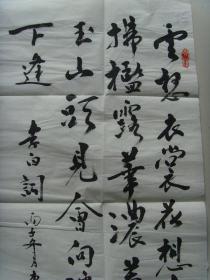 雲想衣裳花想
拂檻露華濃若
玉山頭見會向
下逢 李白詞 丙子